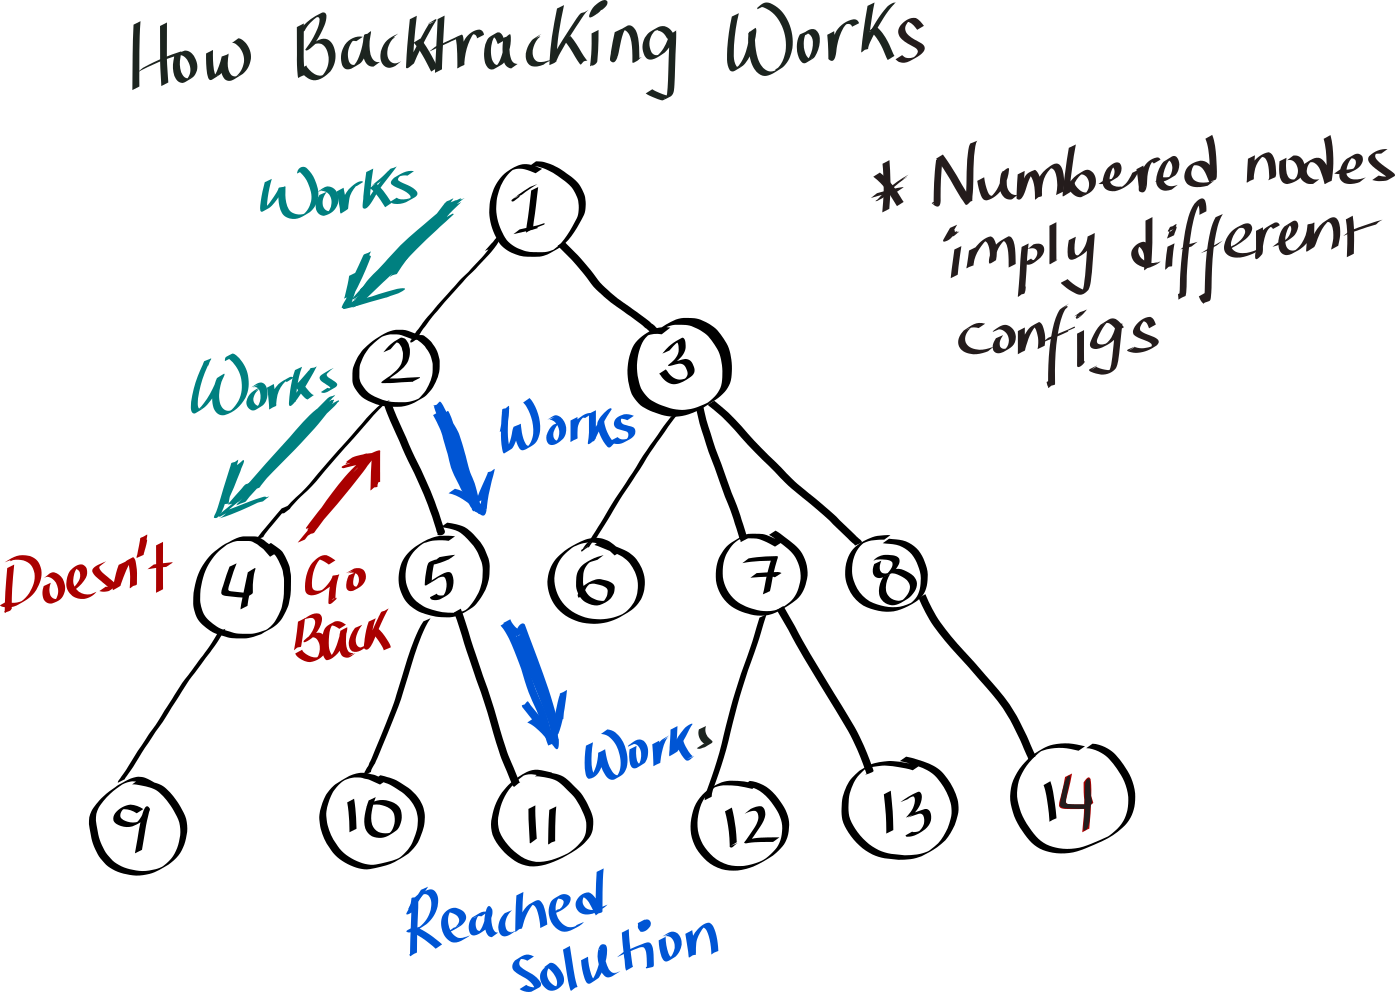 How Backtracking Works
* Numbered nodes
imply different
configs
Works
1
Works
2
3
Works
Doesn't
4
Go
Back
5
6
7
8
Works
9
10
11
12
13
14
Reached
Solution